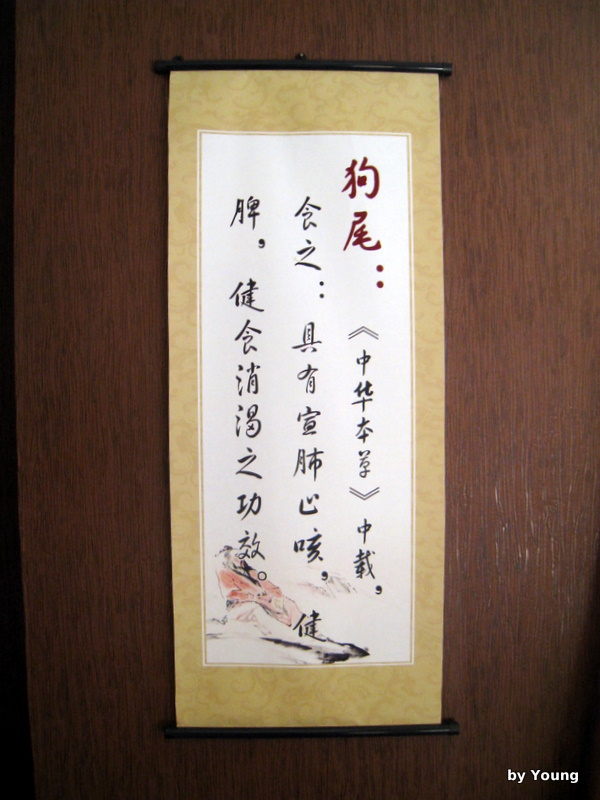 狗尾：《中华本草》中载，
食之：具有宣肺止咳，健
脾，健食消渴之功效。
by Young